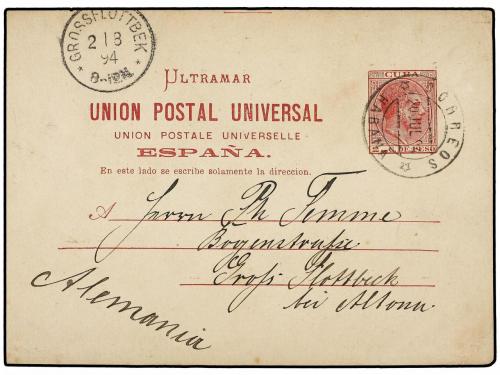 GROSSFLOTTBEK
2 | 8
94
ULTRAMAR
UNION POSTAL UNIVERSAL
UNION POSTALE UNIVERSELLE
ESPAÑA.
En este lado se escribe solamente la direccion.
CUBA
CORREOS
HABANA
DE PESO
A Herrn Ph Temme
Bogenstraße
Groß Flottbeck
bei Altona.
Alemania